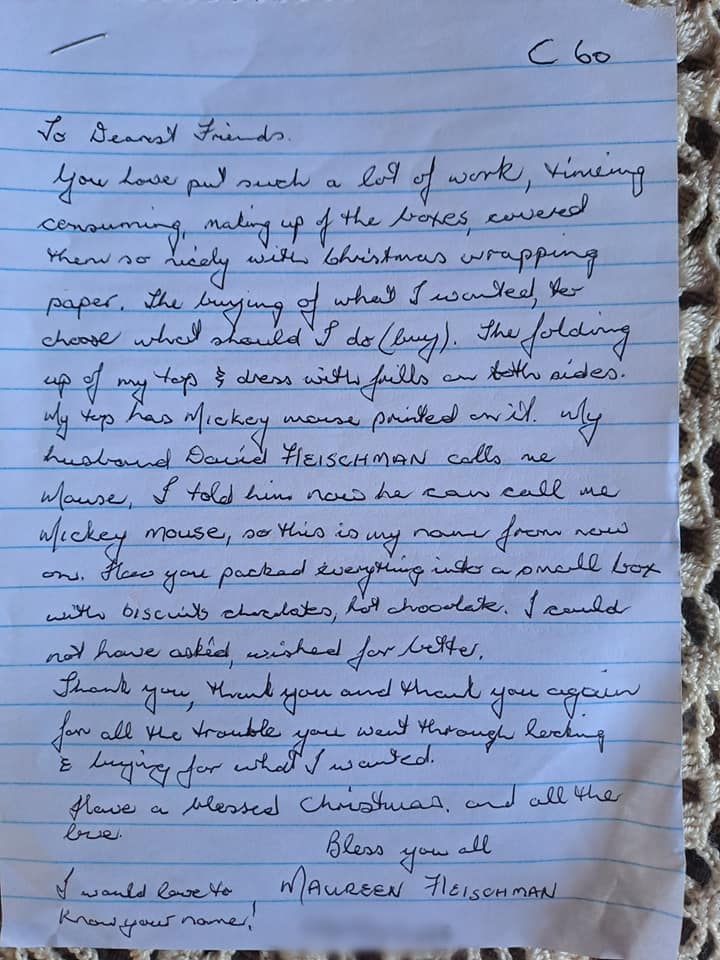 C 60
To Dearest Friends.
You have put such a lot of work, timeing
consuming, making up of the boxes, covered
them so nicely with Christmas wrapping
paper. The buying of what I wanted, to
choose what should I do (buy). The folding
up of my top & dress with frills on both sides.
My top has Mickey mouse printed on it. My
husband David FLEISCHMAN calls me
Mouse, I told him now he can call me
Mickey mouse, so this is my name from now
on. How you packed everything into a small box
with biscuits chocolates, hot chocolate. I could
not have asked, wished for better.
Thank you, thank you and thank you again
for all the trouble you went through looking
& buying for what I wanted.
Have a blessed Christmas. and all the
love.
Bless you all
I would love to MAUREEN FLEISCHMAN
Know your name!